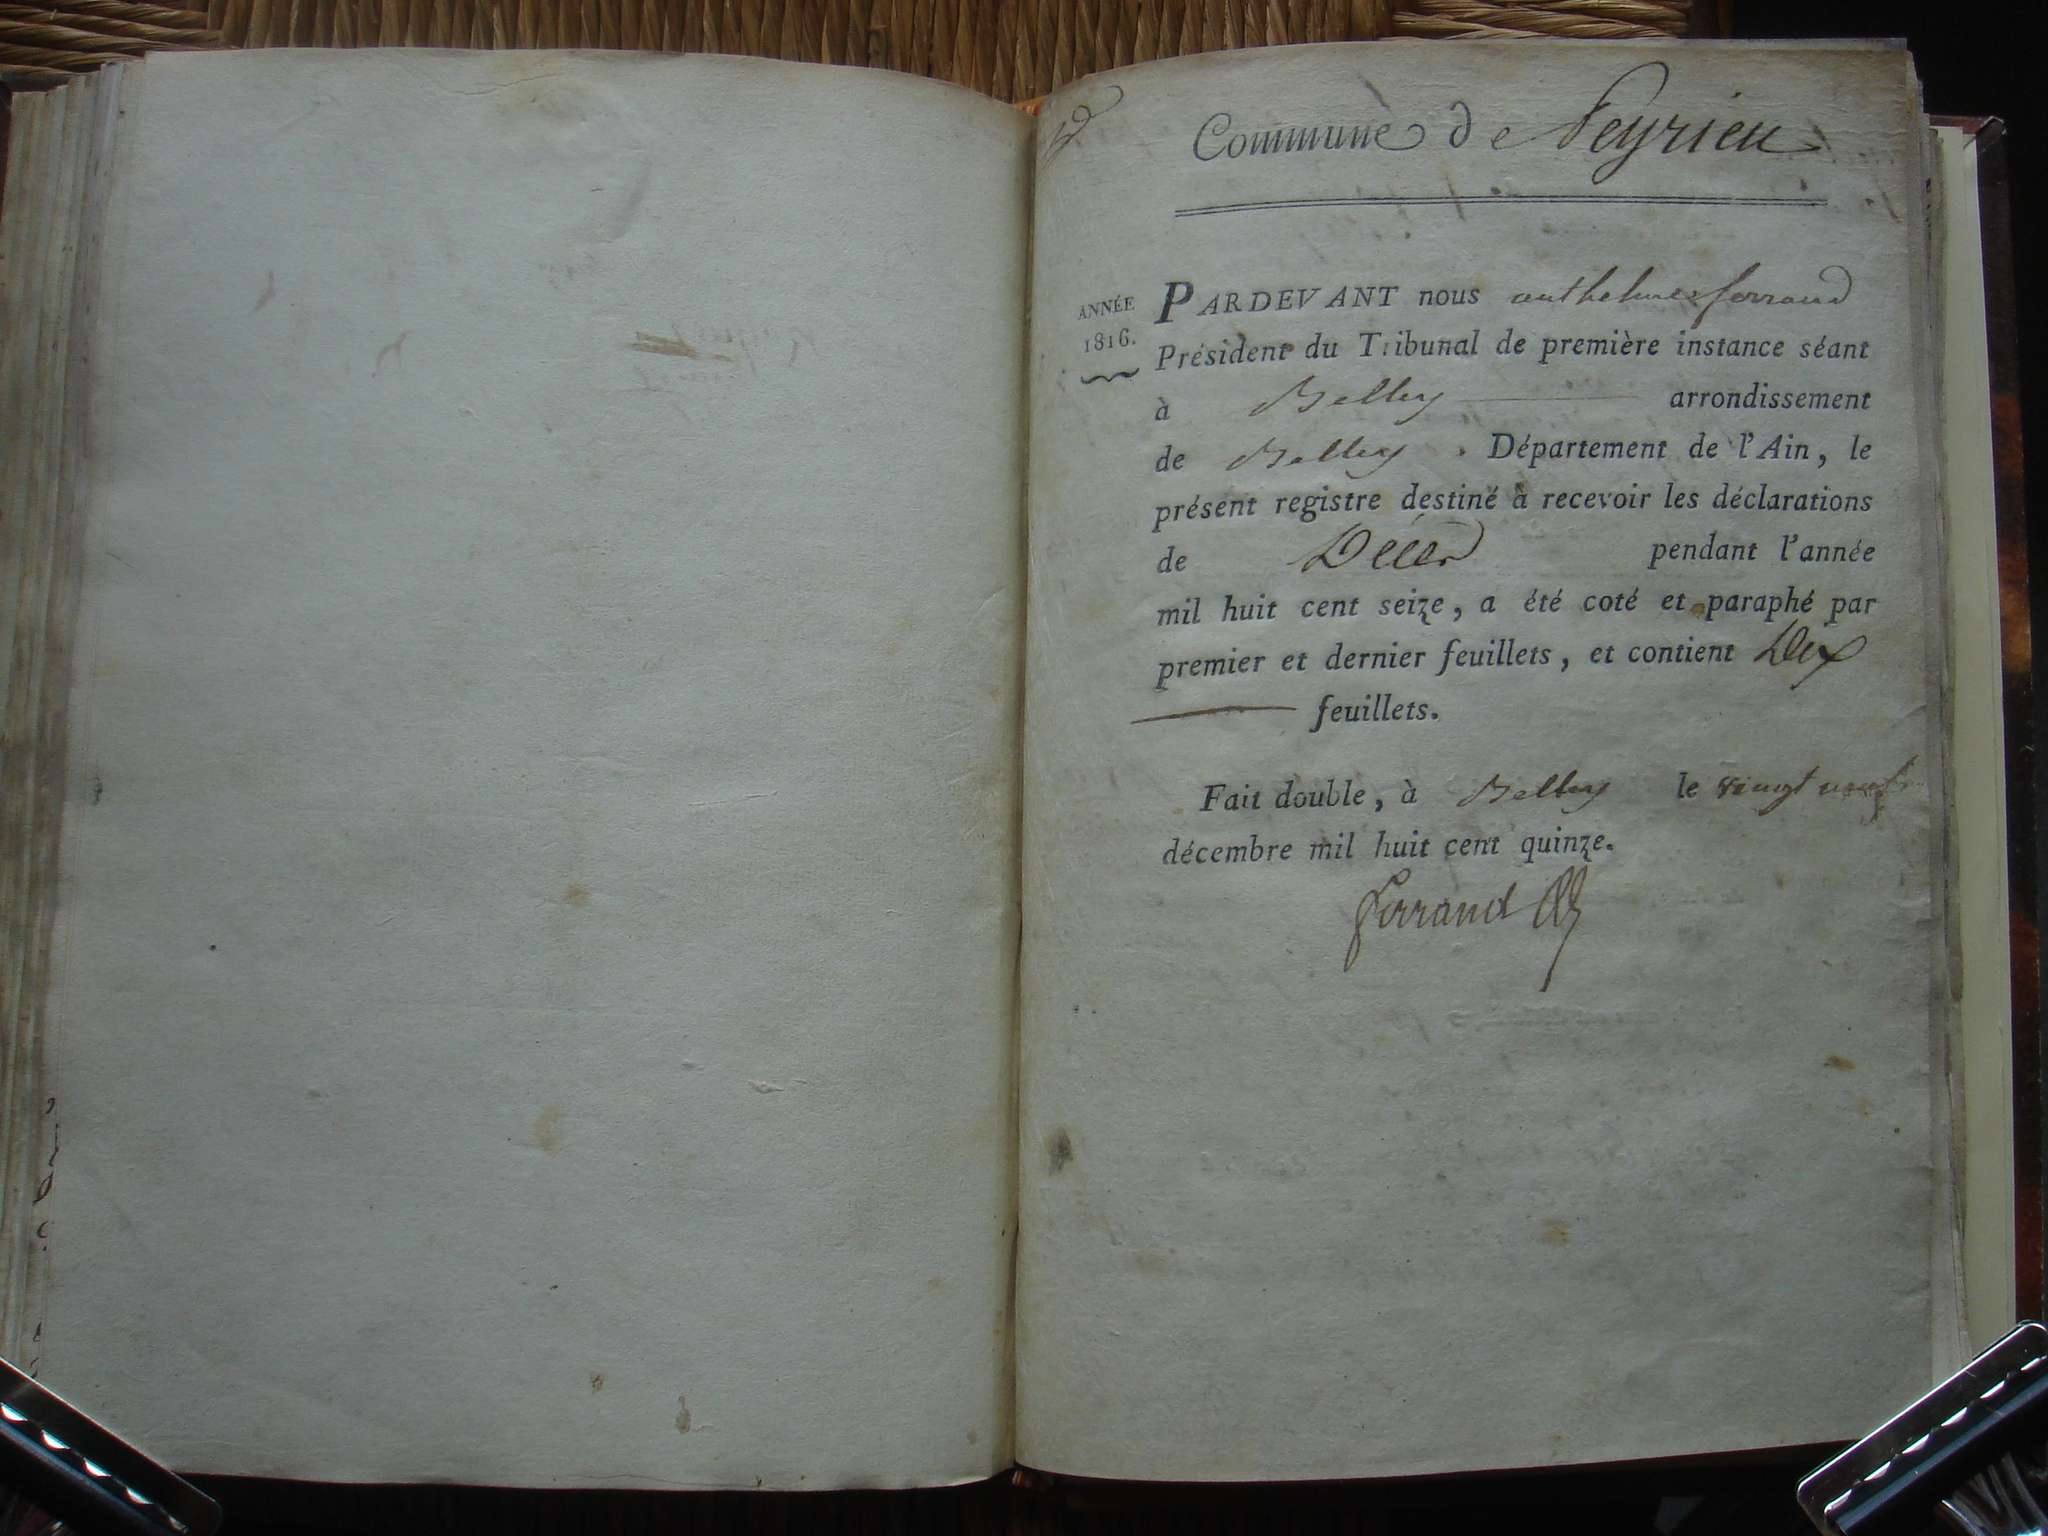 Commune de Peyrieu
ANNÉE
1816.
PARDEVANT nous anthelme ferrand
Président du Tribunal de première instance séant
à Belley arrondissement
de Belley . Département de l'Ain, le
présent registre destiné à recevoir les déclarations
de Décès pendant l'année
mil huit cent seize, a été coté et paraphé par
premier et dernier feuillets, et contient Dix
feuillets.
Fait double, à Belley le vingt neuf
décembre mil huit cent quinze.
ferrand